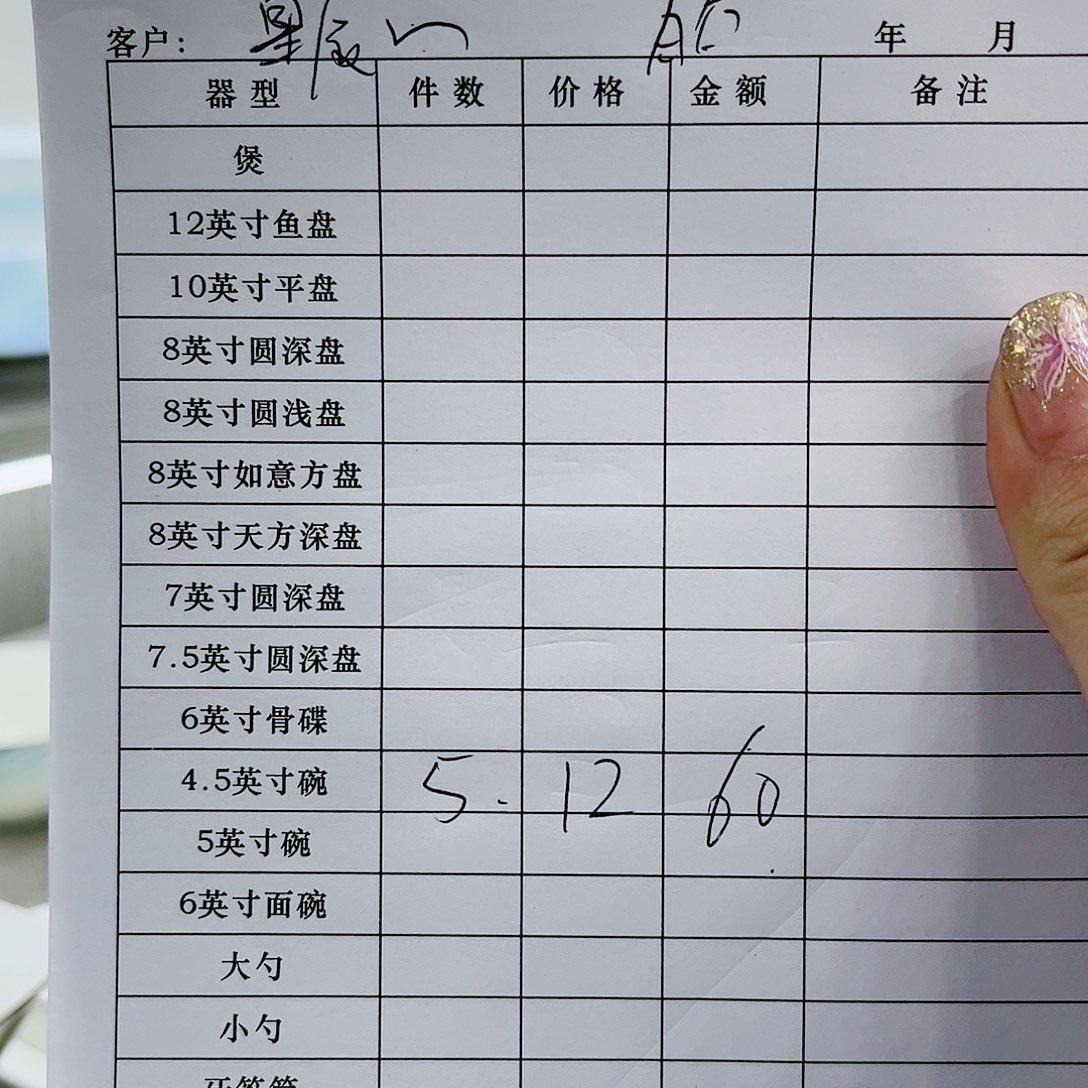 客户: 年 月
器型 件数 价格 金额 备注
煲
12英寸鱼盘
10英寸平盘
8英寸圆深盘
8英寸圆浅盘
8英寸如意方盘
8英寸天方深盘
7英寸圆深盘
7.5英寸圆深盘
6英寸骨碟
4.5英寸碗 5 12 60
5英寸碗
6英寸面碗
大勺
小勺